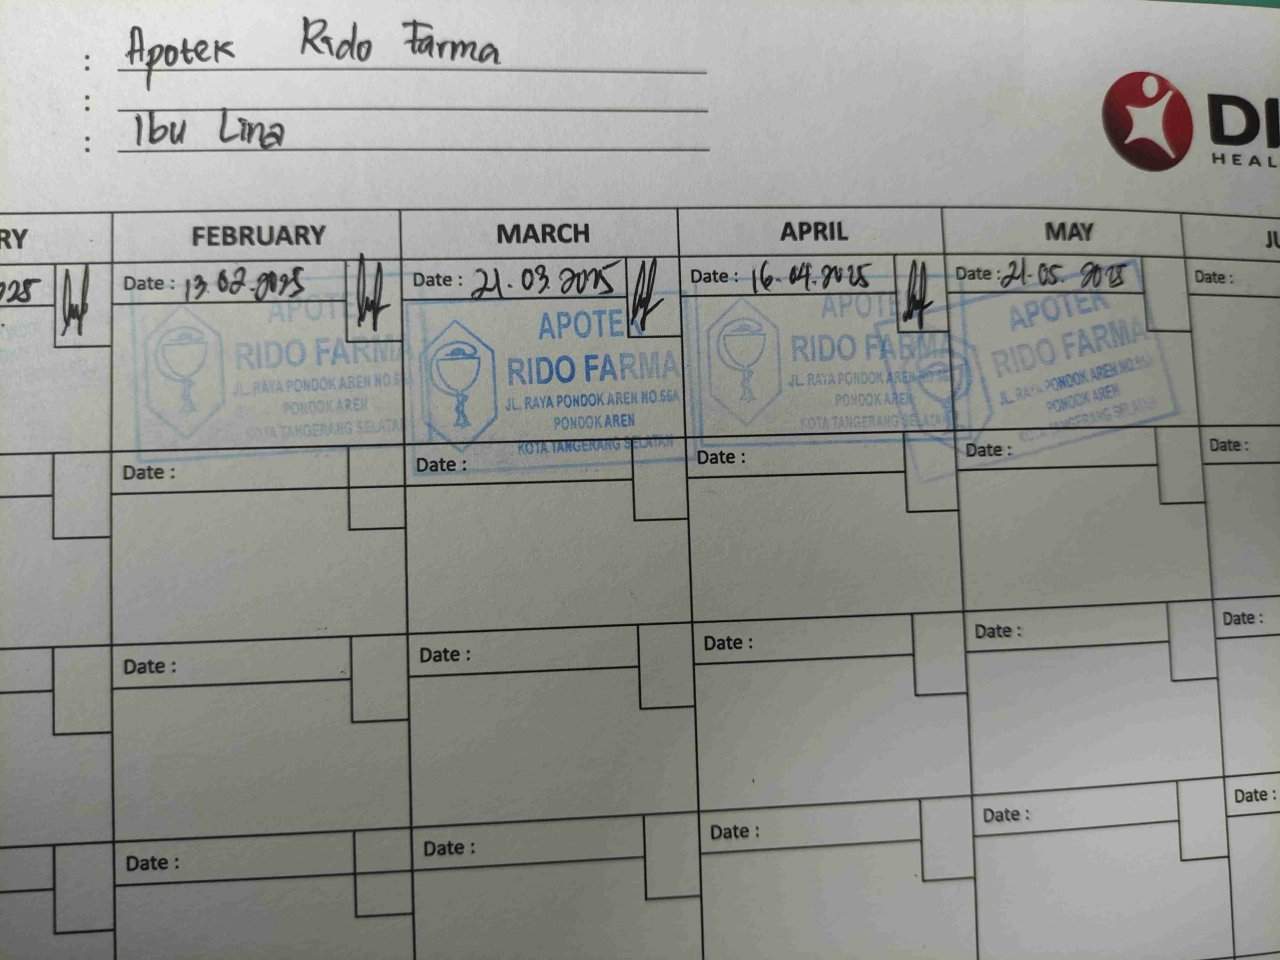 : Apotek Rido Farma
:
: Ibu Lina
DI
HEAL
RY FEBRUARY MARCH APRIL MAY JU
025 Date : 13.02.2025 Date : 21.03.2025 Date : 16.04.2025 Date : 21.05.2025 Date :
APOTEK
RIDO FARMA
JL. RAYA PONDOK AREN NO.56A
PONDOK AREN
KOTA TANGERANG SELATAN
APOTEK
RIDO FARMA
JL. RAYA PONDOK AREN NO.56A
PONDOK AREN
KOTA TANGERANG SELATAN
APOTEK
RIDO FARMA
JL. RAYA PONDOK AREN NO.56A
PONDOK AREN
KOTA TANGERANG SELATAN
APOTEK
RIDO FARMA
JL. RAYA PONDOK AREN NO.56A
PONDOK AREN
KOTA TANGERANG SELATAN
Date : Date : Date : Date : Date :
Date : Date : Date : Date : Date :
Date : Date : Date : Date : Date :